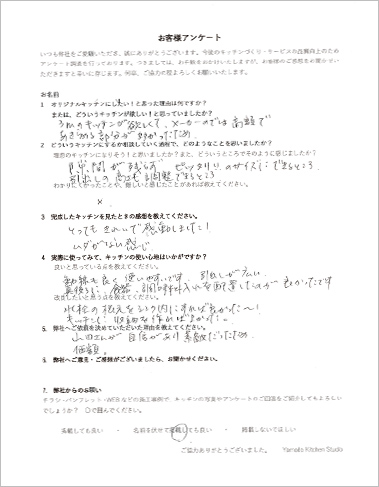 お客様アンケート
いつも弊社をご愛顧いただき、誠にありがとうございます。今後のキッチンづくり・サービスの品質向上のため
アンケート調査を行っております。つきましては、お手数をおかけいたしますが、お客様のご感想をお聞かせい
ただきますと幸いに存じます。何卒、ご協力の程よろしくお願いいたします。
お名前
1 オリジナルキッチンにしたい！と思った理由は何ですか？
または、どういうキッチンが欲しい！と思っていましたか？
キッチンが欲しくて、メーカーのでは高額で
あきらめる部分が
2 どういうキッチンにするか相談していく過程で、どのようなことを思いましたか？
理想のキッチンになりそう！と思いましたか？また、どういうところでそのように感じましたか？
ピッタリ のサイズにできるところ
引出しの高さも 調整できるところ
わかりにくかったことや、難しいと感じたことがあれば教えてください。
×
3 完成したキッチンを見たときの感想を教えてください。
とってもきれいで感動しました！
ムダがない感じ
4 実際に使ってみて、キッチンの使い心地はいかがですか？
良いと思っている点を教えてください。
動線も良く使いやすいです。引出しが
良かったです
改善したいと思う点を教えてください。
水栓の根元をシンク内にすれば良かった〜！
キッチンに収納を作れば良かった。
5 弊社へご依頼を決めていただいた理由を教えてください。
山田さんが
価額。
6 弊社へご意見・ご感想がございましたら、お聞かせください。
7. 弊社からのお願い
チラシ・パンフレット・WEBなどの施工事例で、キッチンの写真やアンケートのご回答をご紹介してもよろしい
でしょうか？ ○で囲んでください。
掲載しても良い ・ 名前を伏せて掲載しても良い ・ 掲載しないでほしい
ご協力ありがとうございました。 Yamato Kitchen Studio